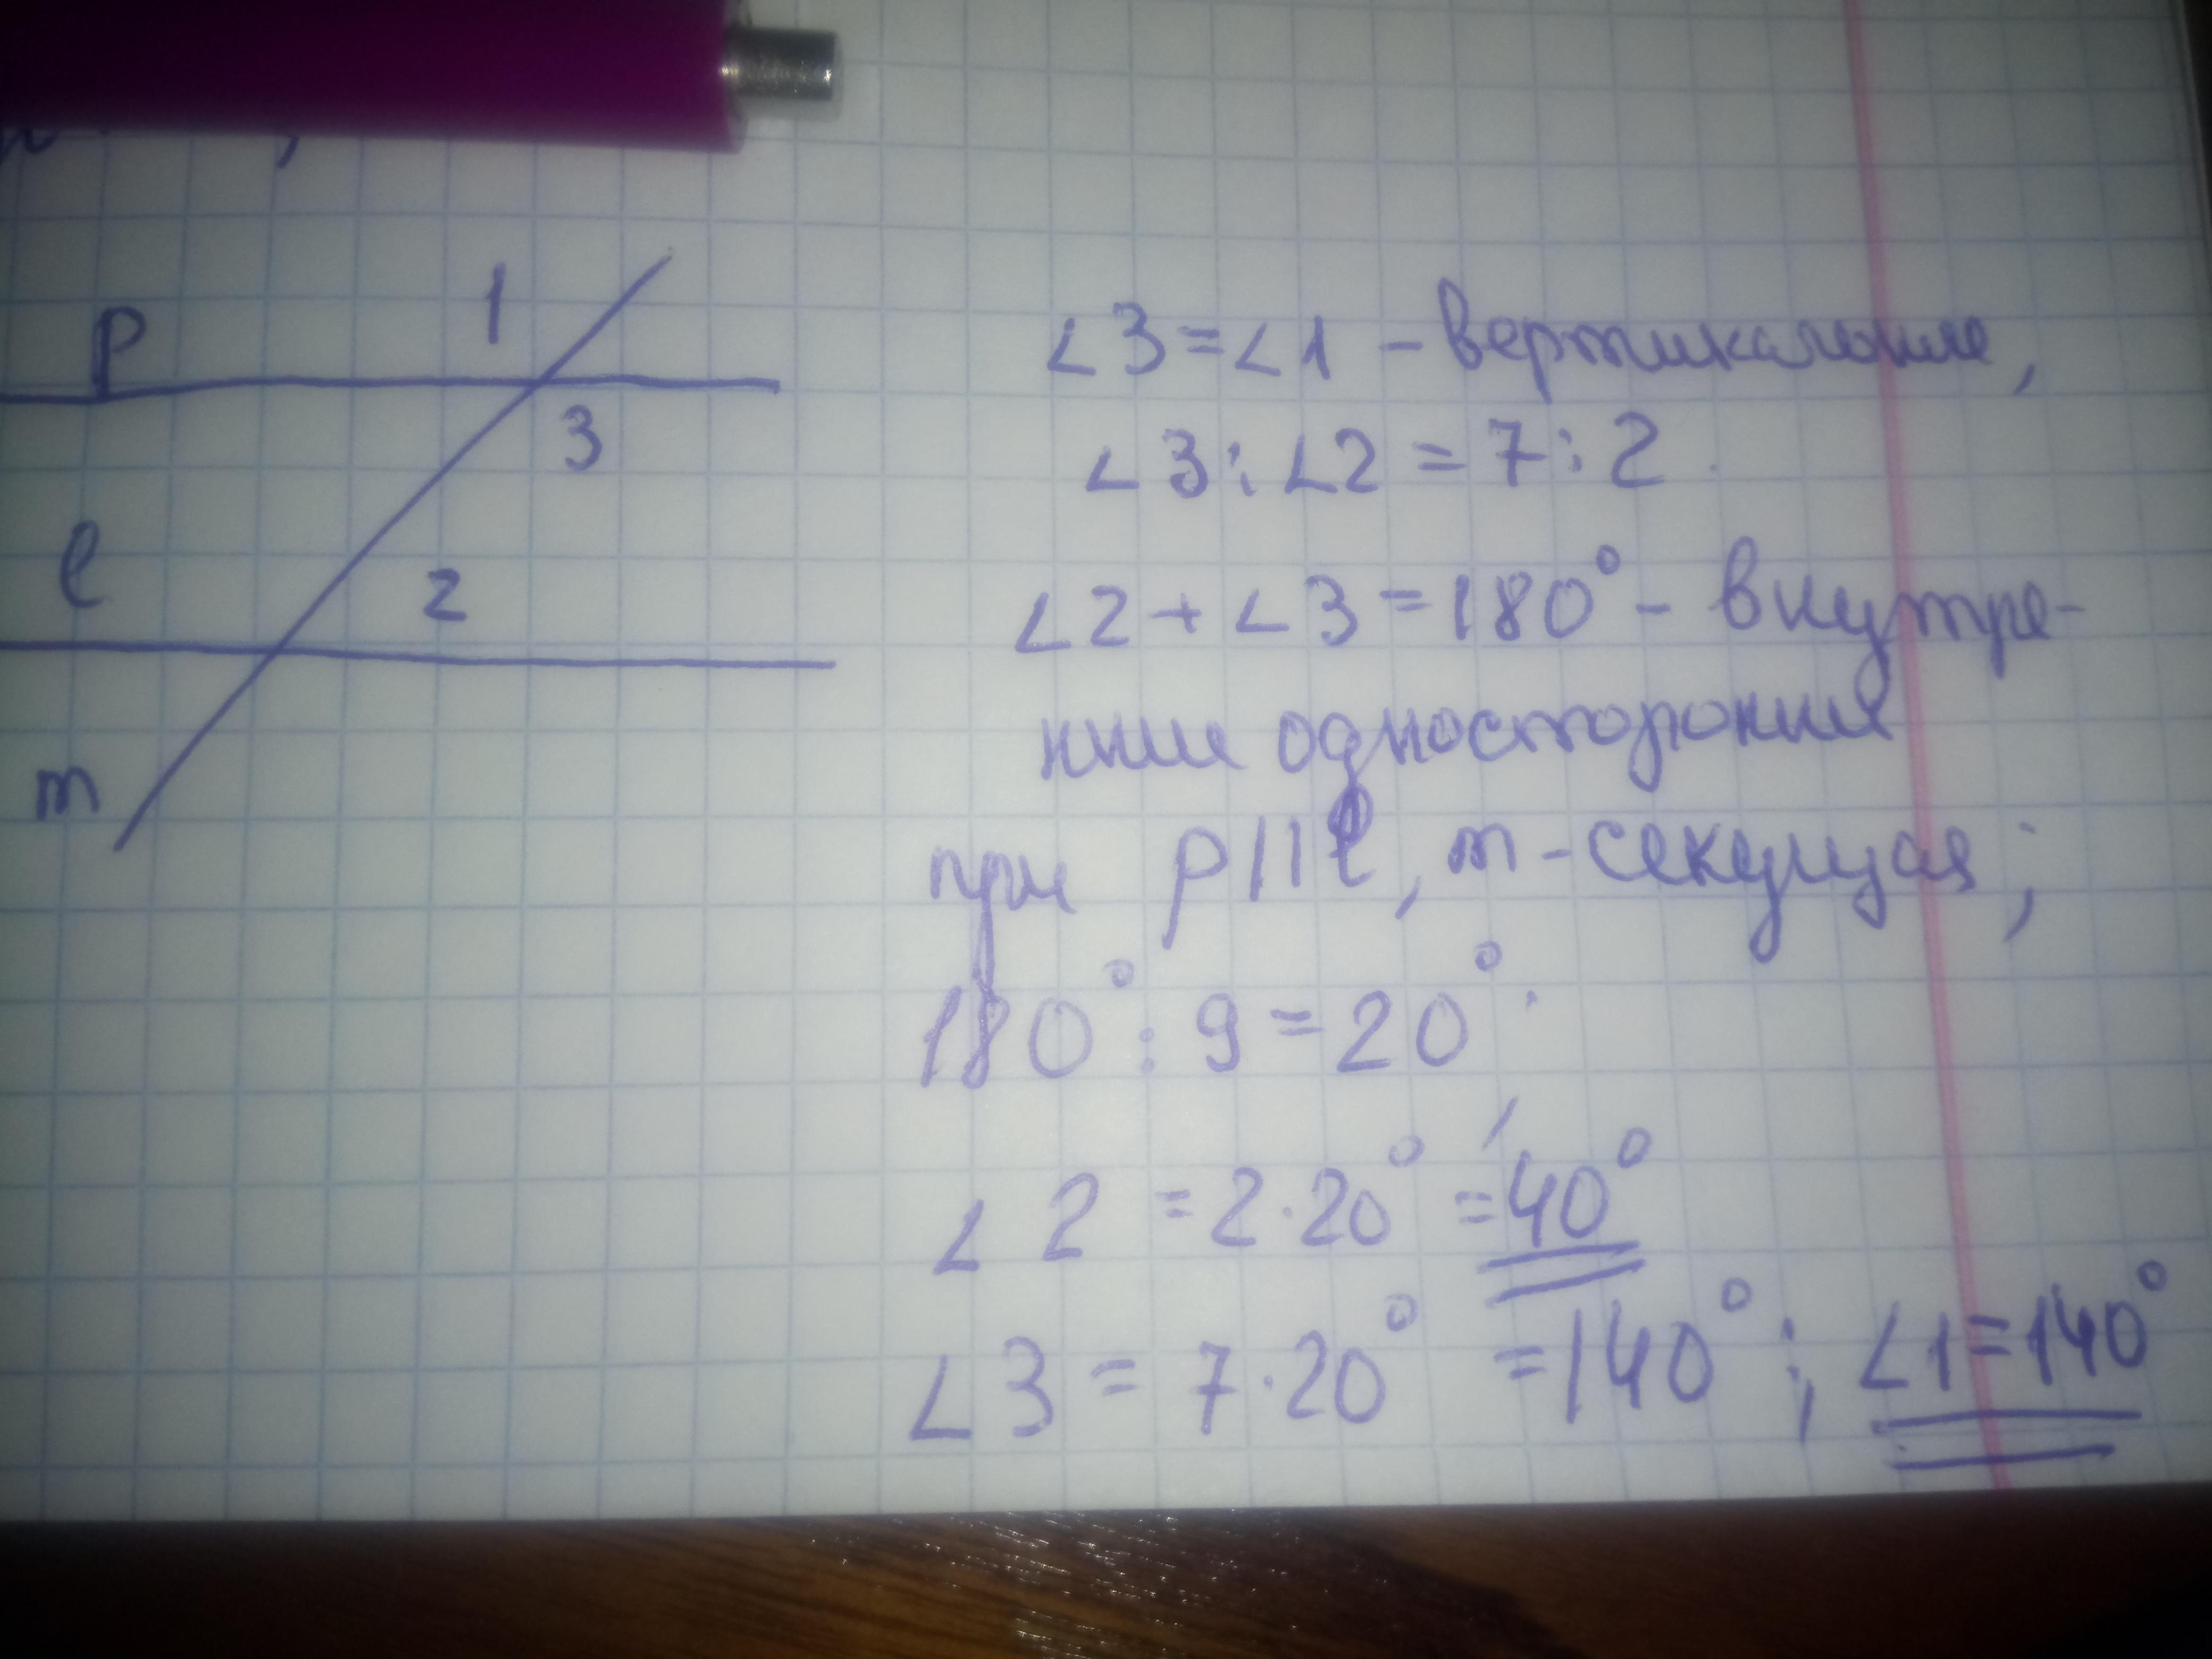 p
1
3
l
2
m
∠3=∠1 - вертикальные,
∠3:∠2=7:2.
∠2+∠3=180° - внутре-
нние односторонние
при p||l, m-секущая;
180°:9=20°
∠2=2·20°=40°
∠3=7·20°=140°; ∠1=140°